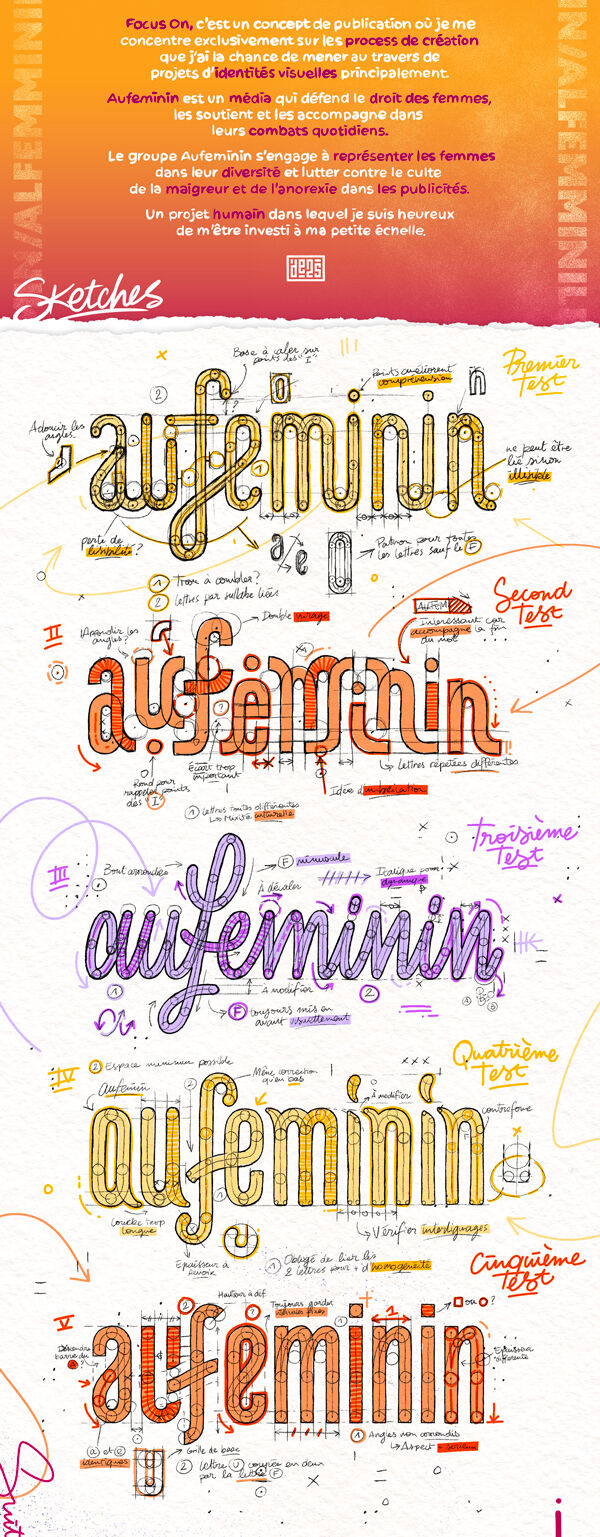 Focus On, c'est un concept de publication où je me
concentre exclusivement sur les process de création
que j'ai la chance de mener au travers de
projets d'identités visuelles principalement.
Aufeminin est un média qui défend le droit des femmes,
les soutient et les accompagne dans
leurs combats quotidiens.
Le groupe Aufeminin s'engage à représenter les femmes
dans leur diversité et lutter contre le culte
de la maigreur et de l'anorexie dans les publicités.
Un projet humain dans lequel je suis heureux
de m'être investi à ma petite échelle.
Sketches
Premier
Test
Base à caler sur
points des "I"
Points améliorent
compréhension
Adoucir les
angles
aufeminin
ne peut être
lié sinon
illisible
perte de
lisibilité ?
a/e
Patron pour toutes
les lettres sauf le F
1 Trou à combler ?
2 Lettres par syllabe liées
Second
Test
II
Double virage
Arrondir les
angles ?
AUFEM
Intéressant car
accompagne la fin
du mot
aufeminin
Écart trop
important
Rond pour
rappeler points
des "I"
Lettres répétées différentes
1 Lettres toutes différentes
Mixité culturelle
Troisième
Test
III
Bout arrondis
F minuscule
À décaler
Italique pour
dynamisme
aufeminin
À modifier
F toujours mis en
avant visuellement
Quatrième
Test
IV
2 Espace minimum possible
Aufeminin
Même correction
qu'en bas
À modifier
contreforme
aufeminin
Courbe trop
longue
Épaisseur à
revoir
Vérifier interlignages
1 Obligé de lier les
2 lettres pour + d'homogénéité
Cinquième
Test
V
Hauteur à déf.
Toujours garder
ou ?
Descendre
barre du
a ?
aufeminin
Épaisseur
différente
a et e
identiques
Grille de base
2 Lettre U coupée en deux
par la lettre F
1 Angles non arrondis
Aspect + sérieux
i